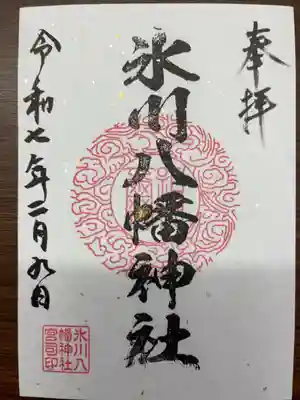 奉拝
氷川八幡神社
令和七年二月九日
氷川八
幡神社
宮司印